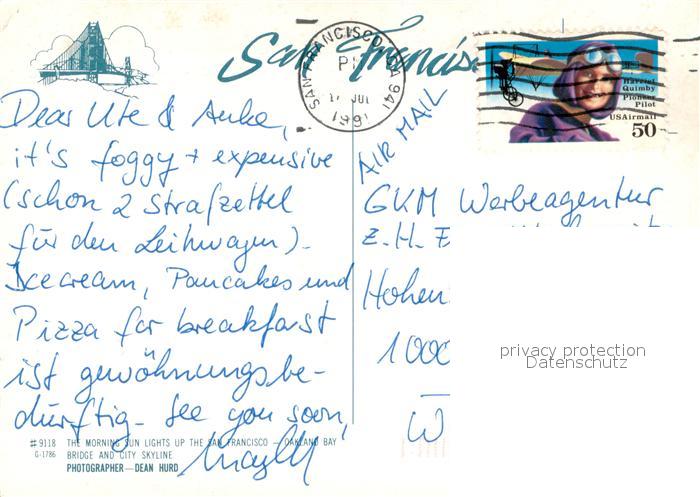 San Francisco
SAN FRANCISCO, CA 941
PM
17 JUL
1991
Harriet
Quimby
Pioneer
Pilot
USAirmail
50
AIR MAIL
Dear Ute & Anke,
it's foggy + expensive
(schon 2 Strafzettel
für den Leihwagen).
Icecream, Pancakes und
Pizza for breakfast
ist gewöhnungsbe-
dürftig. See you soon,
GKM Werbeagentur
z. H.
Hohen
1000
W
privacy protection
Datenschutz
#9118 THE MORNING SUN LIGHTS UP THE SAN FRANCISCO — OAKLAND BAY
G-1786 BRIDGE AND CITY SKYLINE
PHOTOGRAPHER—DEAN HURD